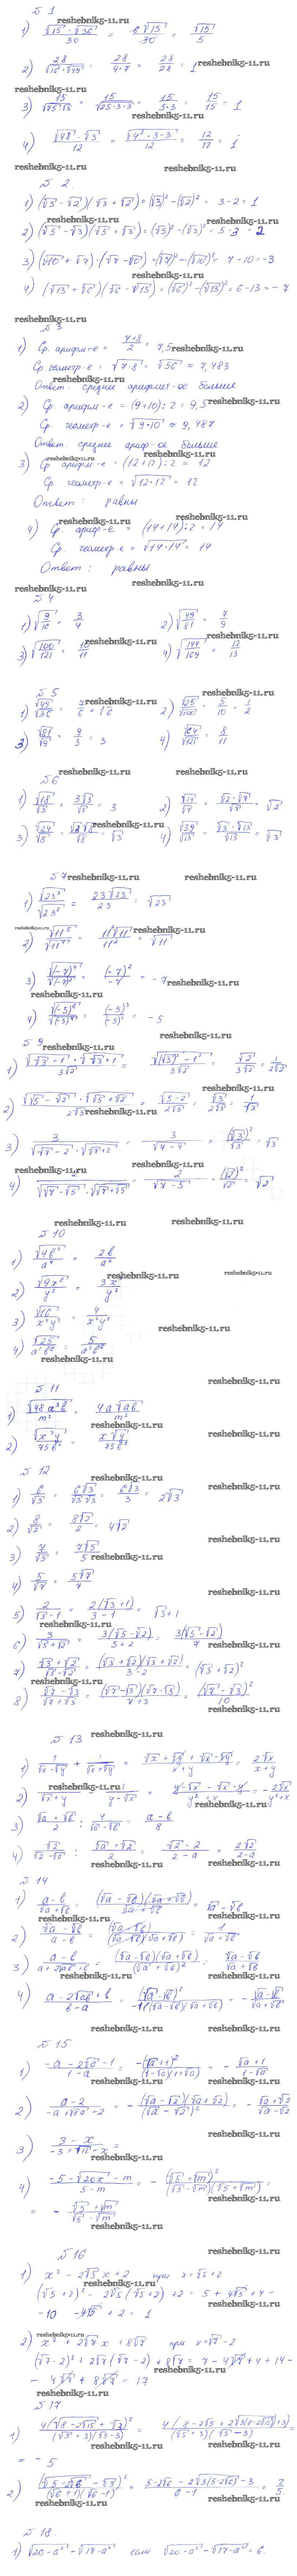 № 1
1) √15 · √36 / 30 = 6√15 / 30 = √15 / 5
2) 28 / √16 · √49 = 28 / 4·7 = 28 / 28 = 1
3) 15 / √75 √3 = 15 / √25·3·3 = 15 / 5·3 = 15 / 15 = 1
4) √48 · √3 / 12 = √4²·3·3 / 12 = 12 / 12 = 1
№ 2
1) (√3 - √2)(√3 + √2) = (√3)² - (√2)² = 3 - 2 = 1
2) (√5 - √3)(√5 + √3) = (√5)² - (√3)² = 5 - 3 = 2
3) (√10 + √7) · (√7 - √10) = (√7)² - (√10)² = 7 - 10 = -3
4) (√13 + √6)(√6 - √13) = (√6)² - (√13)² = 6 - 13 = -7
№ 3
1) Ср. арифм-е = 7+8 / 2 = 7,5
Ср геометр-е = √7·8 = √56 ≈ 7,483
Ответ: среднее арифмет-ое больше
2) Ср. арифм-е = (9+10) : 2 = 9,5
Ср. геометр-е = √9·10 ≈ 9,487
Ответ. среднее ариф-ое больше
3) Ср арифм-е = (12+12) : 2 = 12
Ср. геометр-е = √12·12 = 12
Ответ: равны
4) Ср. ариф-е = (14+14) : 2 = 14
Ср. геометр-е = √14·14 = 14
Ответ: равны
№ 4
1) √9/16 = 3/4 2) √49/81 = 7/9
3) √100/121 = 10/11 4) √144/169 = 12/13
№ 5
1) √49 / √36 = 7/6 = 1 1/6 2) √25 / √100 = 5/10 = 1/2
3) √81 / √9 = 9/3 = 3 4) √64 / √121 = 8/11
№ 6
1) √18 / √3 = 3√3 / √3 = 3 2) √14 / √7 = √2·√7 / √7 = √2
3) √24 / √8 = √3√8 / √8 = √3 4) √39 / √13 = √3·√13 / √13 = √3
№ 7
1) √23³ / √23² = 23√23 / 23 = √23
2) √11⁵ / √11⁴ = 11²√11 / 11² = √11
3) √(-7)⁴ / √(-7)² = (-7)² / -7 = -7
4) √(-5)⁶ / √(-5)⁴ = (-5)³ / (-5)² = -5
№ 9
1) √√3 - 1 · √√3 + 1 / 3√2 = √(√3)² - 1² / 3√2 = √2 / 3√2 = 1 / 2√2
2) √√5 - √2 · √√5 + √2 / 2√3 = √5-2 / 2√3 = √3 / 2√3 = 1 / √2
3) 3 / √√7 - 2 · √√7 + 2 = 3 / √7-4 = (√3)² / √3 = √3
4) 2 / √√7 - √5 · √√7 + √5 = 2 / √7-5 = (√2)² / √2 = √2
№ 10
1) √4b² / a⁴ = 2b / a⁴
2) √9x² / y² = 3x / y²
3) √16 / x²y² = 4 / x²y²
4) √25 / a²b² = 5 / a²b²
№ 11
1) √48a³b / m² = 4a√ab / m²
2) √x²y / 75b² = x√y / 75b²
№ 12
1) 6 / √3 = 6√3 / √3√3 = 6√3 / 3 = 2√3
2) 8 / √2 = 8√2 / 2 = 4√2
3) 7 / √5 = 7√5 / 5
4) 5 / √7 = 5√7 / 7
5) 2 / √3 - 1 = 2(√3 + 1) / 3 - 1 = √3 + 1
6) 3 / √5 + √2 = 3(√5 - √2) / 5 + 2 = 3(√5 - √2) / 7
7) √3 + √2 / √3 - √2 = (√3 + √2)(√3 + √2) / 3 - 2 = (√3 + √2)²
8) √7 - √3 / √7 + √3 = (√7 - √3)(√7 - √3) / 7 + 3 = (√7 - √3)² / 10
№ 13
1) 1 / √x - √y + 1 / √x + √y = √x + √y + √x - √y / x + y = 2√x / x + y
2) 1 / √x + y - 1 / y - √x = y - √x - √x - y / y² + x = - 2√x / y² + x
3) √a + √b / 2 : 4 / √a - √b = a - b / 8
4) √2 / √2 - √a : √a + √2 / 2 = √2 · 2 / 2 - a = 2√2 / 2 - a
№ 14
1) a - b / √a + √b = (√a - √b)(√a + √b) / √a + √b = √a - √b
2) √a - √b / a - b = (√a - √b) / (√a - √b)(√a + √b) = 1 / √a + √b
3) a - b / a + 2√ab + b = (√a - √b)(√a + √b) / (√a + √b)² = √a - √b / √a + √b
4) a - 2√ab + b / b - a = (√a - √b)² / -1(√a - √b)(√a + √b) = - √a - √b / √a + √b
№ 15
1) -a - 2√a - 1 / 1 - a = -(√a + 1)² / (1 - √a)(1 + √a) = - √a + 1 / 1 - √a
2) a - 2 / -a + √8a - 2 = - (√a - √2)(√a + √2) / (√a - √2)² = - √a + √2 / √a - √2
3) 3 - x / -3 + √12 - x =
4) -5 - √20x - m / 5 - m = - (√5 + √m)² / (√5 - √m)(√5 + √m) =
= - √5 + √m / √5 - √m
№ 16
1) x² - 2√5 x + 2 при x = √5 + 2
(√5 + 2)² - 2√5 (√5 + 2) + 2 = 5 + 4√5 + 4 -
-10 - 4√5 + 2 = 1
2) x² + 2√7 x + 8√7 при x = √7 - 2
(√7 - 2)² + 2√7 (√7 - 2) + 8√7 = 7 - 4√7 + 4 + 14 -
- 4√7 + 8√7 = 17
№ 17
= - 5
№ 18.
1) √20 - a² - √17 - a² если √20 - a² - √17 - a² = 6.
reshebnik5-11.ru